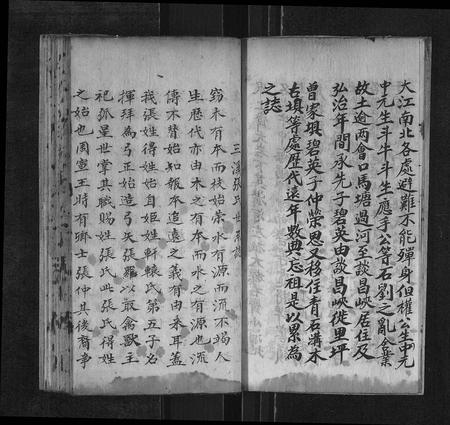 大江南北各處避難不能殫身但權公生中元
中元生斗牛斗生應手公等石劉之亂棄
故土逾兩會口馬塘過河至談昌峽居住及
弘治年間承先子碧英由談昌峽徙里坪
曾家垻碧英子仲榮恩又移住青石溝木
古填等處歷代遠年數典忘祖是以累為
之誌
三溪張氏世系誌
窃木有本而枝始崇水有源而流不竭人
生歷代亦由木之有本而水之有源也流
傳不替始知報本追遠之義有由來耳蓋
我張姓得姓始自姬姓軒轅氏第五子名
揮拜為弓正始造弓矢張羅以取禽獸主
祀孤星世掌其職賜姓張氏此張氏得姓
之始也周宣王時有卿士張仲其後裔事